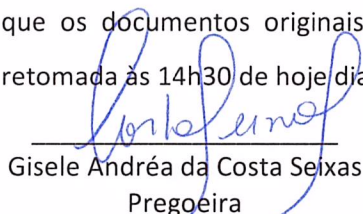 que os documentos originais
retomada às 14h30 de hoje dia
Gisele Andréa da Costa Seixas
Pregoeira